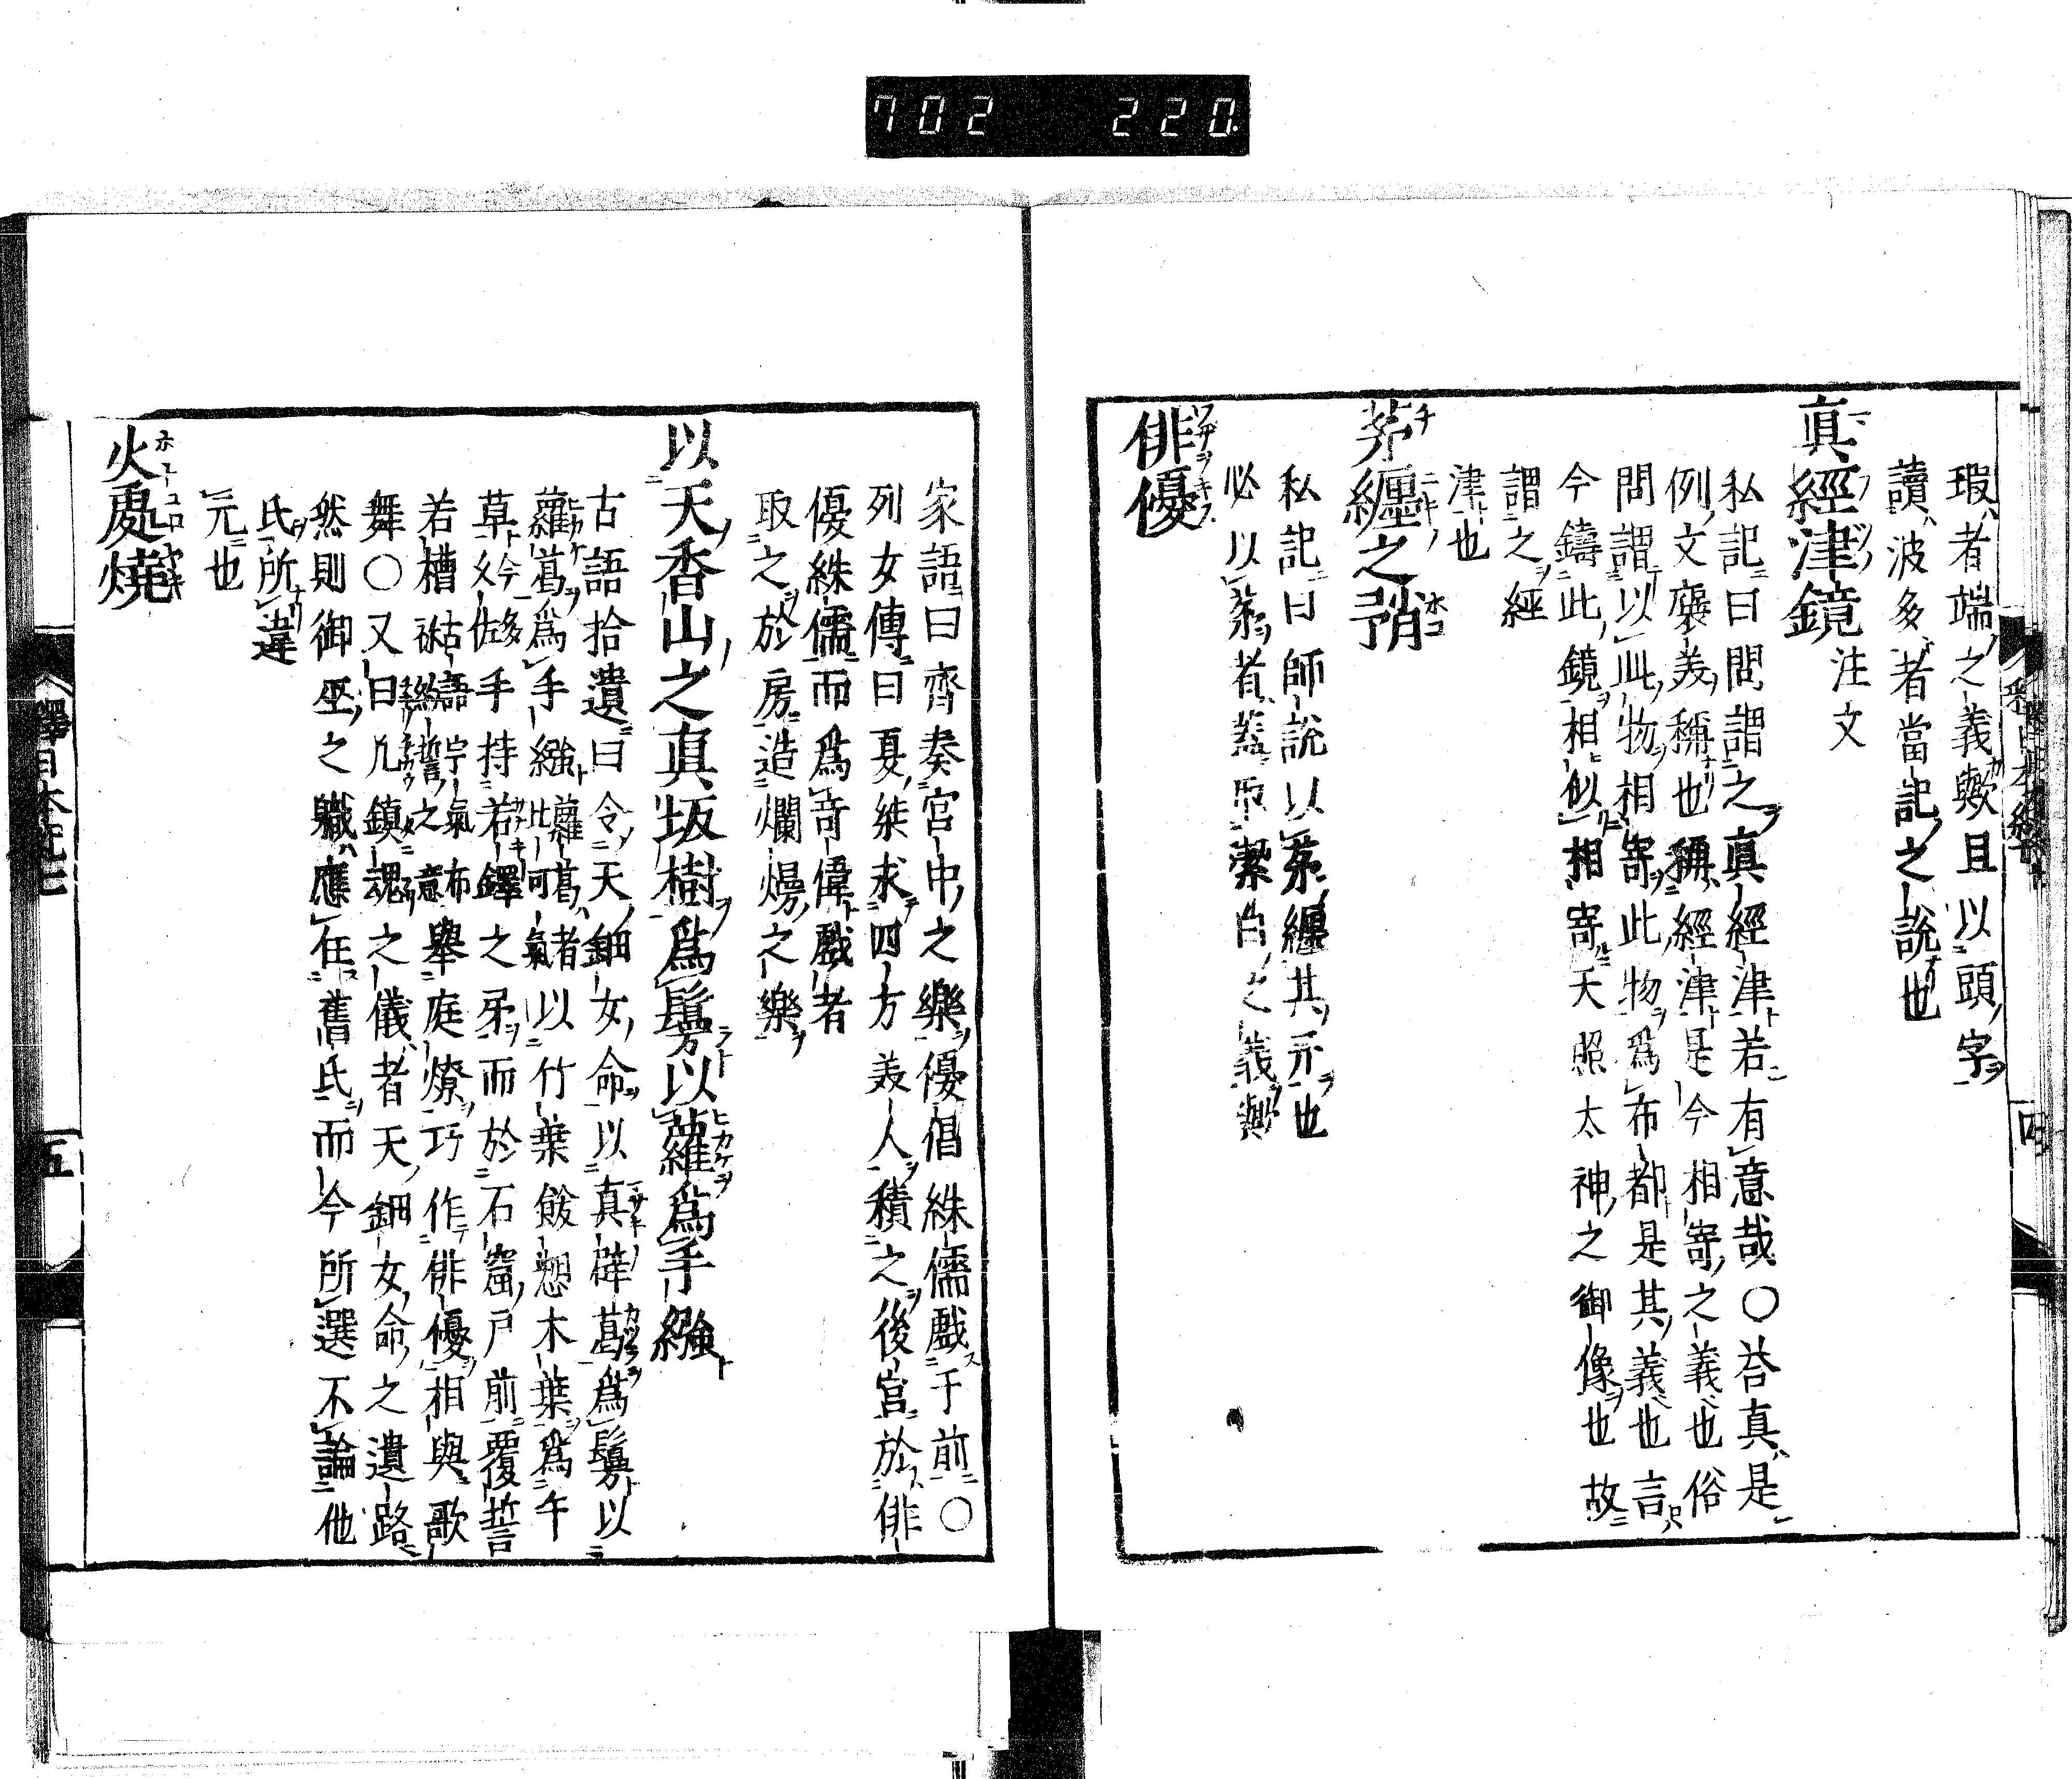 702 220.
瑕者端之義歟且以頭字
讀波多者當記之説也
真經津鏡注文
私記曰問謂之真經津若有意哉〇荅真是
例文褒美稱也稱經津是今相寄之義也俗
問謂以此物相寄此物爲布都是其義也言
今鑄此鏡相似相寄天照太神之御像也故
謂之經
津也
茅纒之矟
私記曰師説以茅纒其矛也
必以茅者蓋取潔白之義歟
俳優
家語曰齊奏宮中之樂優倡絑儒戲于前〇
列女傳曰夏桀求四方美人積之後宮於俳
優絑儒而爲竒偉戲者
取之於房造爛熳之樂
以天香山之真坂樹爲鬘以蘿爲手繦
古語拾遺曰令天鈿女命以真辟葛爲鬘以
蘿葛爲手繦蘿葛者比可氣以竹葉飫憩木葉爲手
草今多久佐手持着鐸之矛而於石窟戸前覆誓
槽古語宇氣布祢約誓之意舉庭燎巧作俳優相與歌
舞〇又曰凡鎮魂之儀者天鈿女命之遺路
然則御巫之職應任舊氏而今所選不論他
氏所違
元也
火處燒
釋日本紀七
五
四